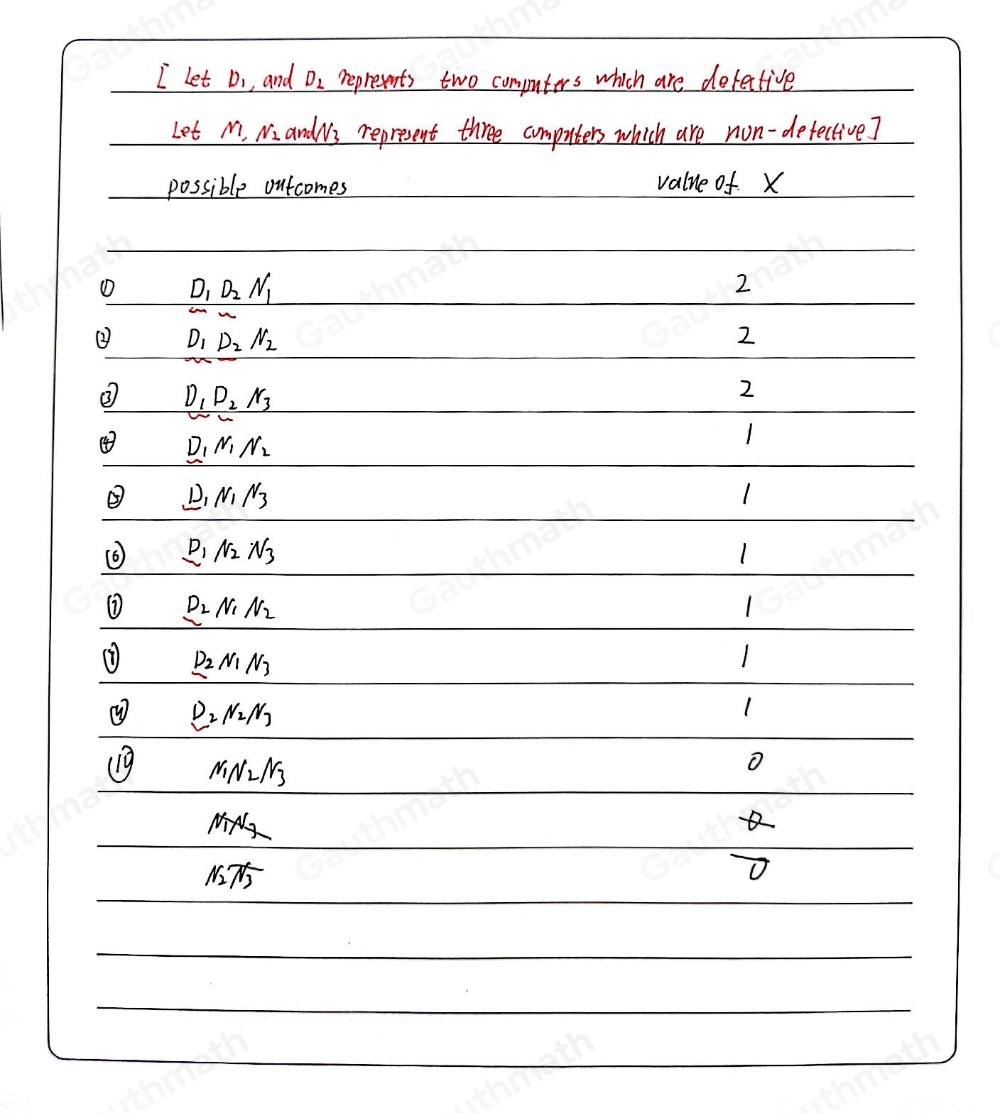 [ Let D₁, and D₂ represents two computers which are defective
Let N₁, N₂ and N₃ represent three computers which are non-defective]
possible outcomes value of X
① D₁ D₂ N₁ 2
② D₁ D₂ N₂ 2
③ D₁ D₂ N₃ 2
④ D₁ N₁ N₂ 1
⑤ D₁ N₁ N₃ 1
⑥ D₁ N₂ N₃ 1
⑦ D₂ N₁ N₂ 1
⑧ D₂ N₁ N₃ 1
⑨ D₂ N₂ N₃ 1
⑩ N₁ N₂ N₃ 0
N₁N₃ 0
N₂N₃ 0
Gauthmath